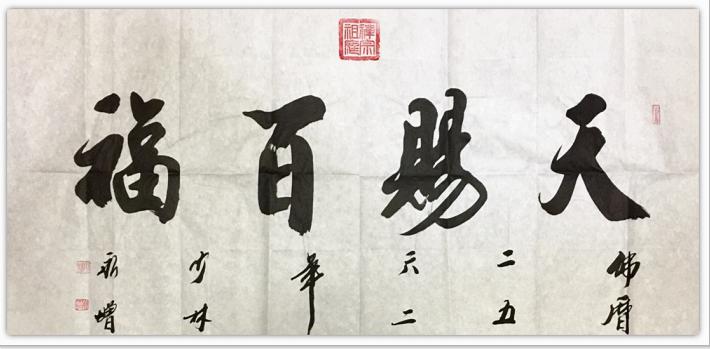 禪宗祖庭
天賜百福
佛曆二五六二年少林永增